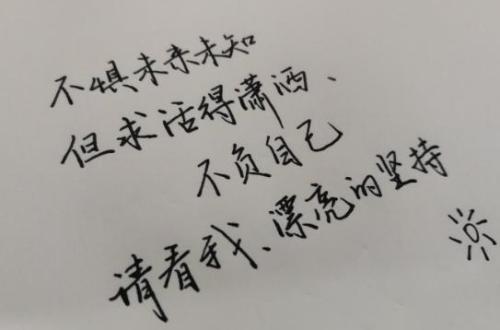 不惧未来未知
但求活得潇洒、
不负自己
请看我、漂亮的坚持